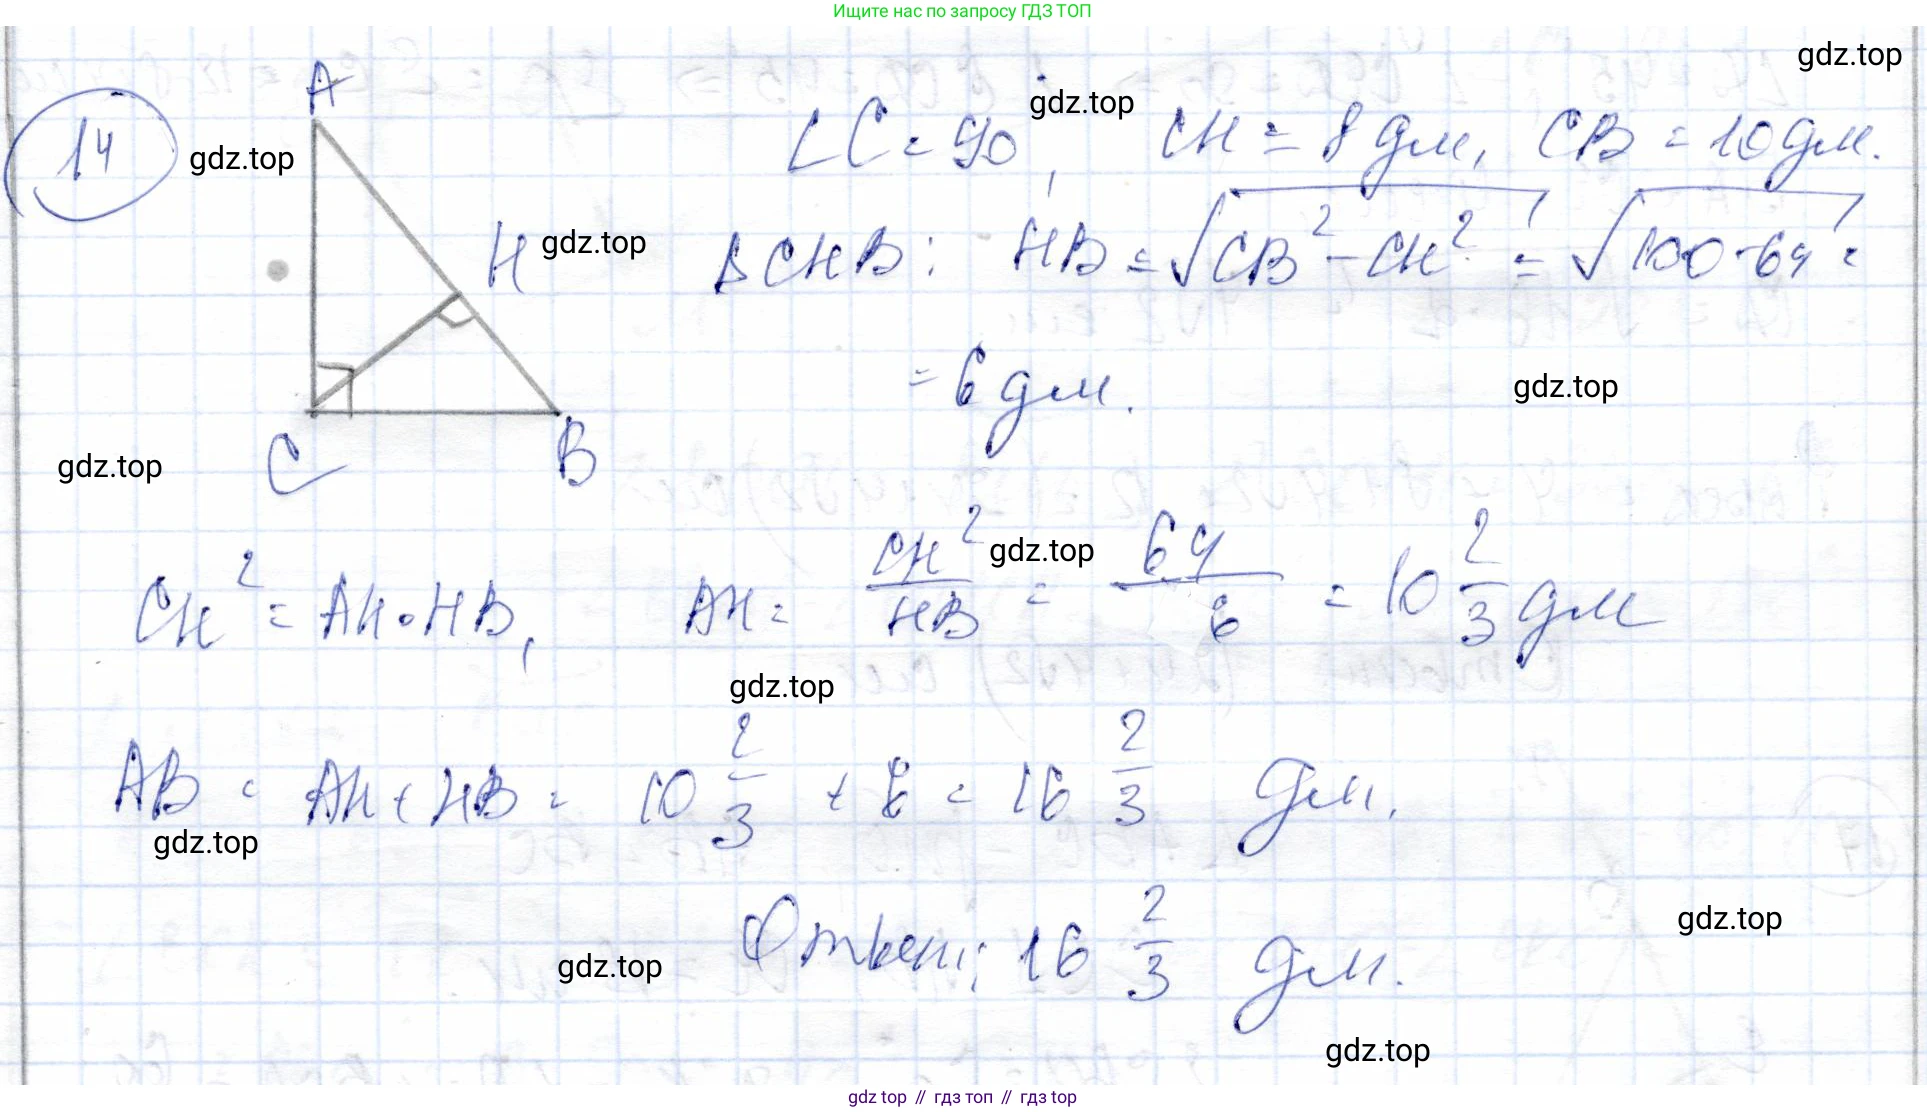 Ищите нас по запросу ГДЗ ТОП
gdz.top
14
A
gdz.top
∠C = 90°, CH = 8 дм, CB = 10 дм.
gdz.top
H
gdz.top
ΔCHB: HB = √(CB² - CH²) = √(100-64) =
= 6 дм.
gdz.top
C
B
gdz.top
CH² = AH·HB, AH = CH²/HB = 64/6 = 10 2/3 дм
gdz.top
gdz.top
AB = AH + HB = 10 2/3 + 6 = 16 2/3 дм.
gdz.top
gdz.top
Ответ: 16 2/3 дм.
gdz.top
gdz.top
gdz.top // гдз топ // гдз top